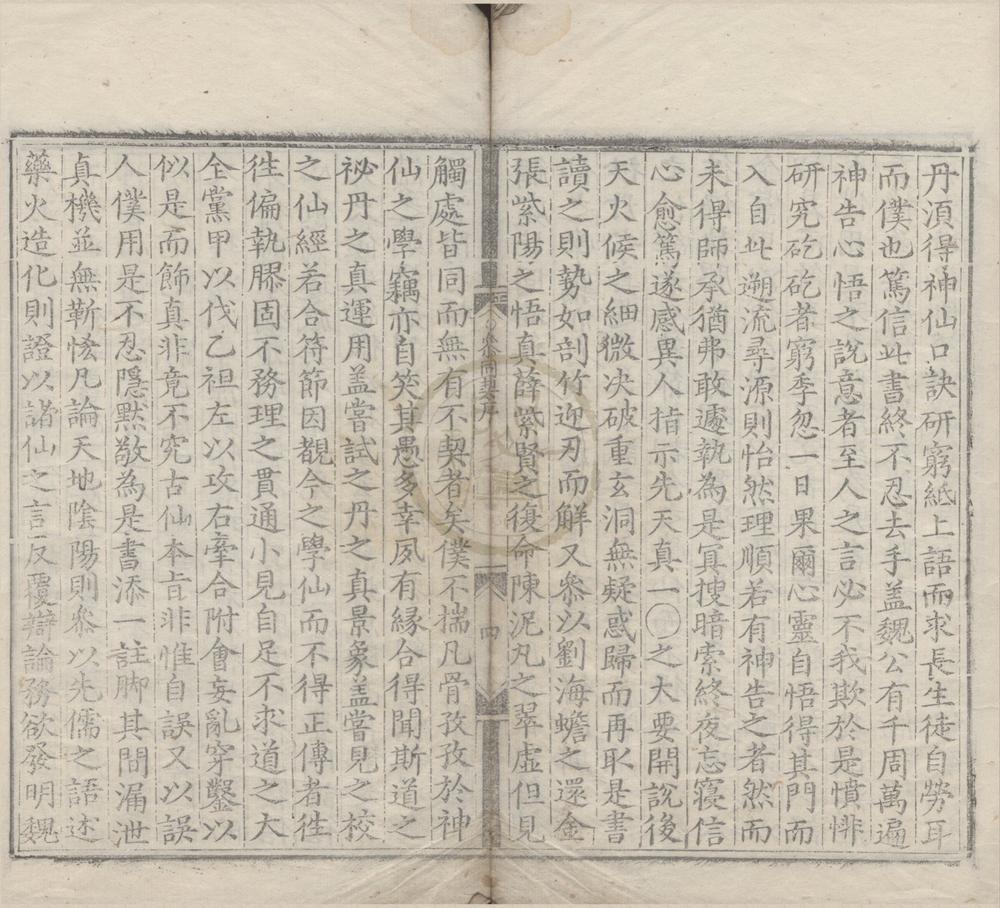 丹須得神仙口訣研窮紙上語而求長生徒自勞耳
而僕也篤信此書終不忍去手盖魏公有千周萬遍
神告心悟之說意者至人之言必不我欺於是憤悱
研究矻矻者窮季忽一日果爾心靈自悟得其門而
入自此遡流尋源則怡然理順若有神告之者然而
未得師承猶弗敢遽執為是冥搜暗索終夜忘寢信
心愈篤遂感異人指示先天真一〇之大要開說後
天火候之細微决破重玄洞無疑惑歸而再取是書
讀之則勢如剖竹迎刃而解又叅以劉海蟾之還金
張紫陽之悟真薛紫賢之復命陳泥丸之翠虛但見
叅同契序
四
觸處皆同而無有不契者矣僕不揣凡骨孜孜於神
仙之學竊亦自笑其愚多幸夙有緣合得聞斯道之
祕丹之真運用盖嘗試之丹之真景象盖嘗見之校
之仙經若合符節因覩今之學仙而不得正傳者徃
徃偏執膠固不務理之貫通小見自足不求道之大
全黨甲以伐乙袒左以攻右牽合附會妄亂穿鑿以
似是而飾真非竟不究古仙本旨非惟自誤又以誤
人僕用是不忍隱默敬為是書添一註脚其間漏泄
真機並無靳恡凡論天地陰陽則叅以先儒之語述
藥火造化則證以諸仙之言反覆辯論務欲發明魏